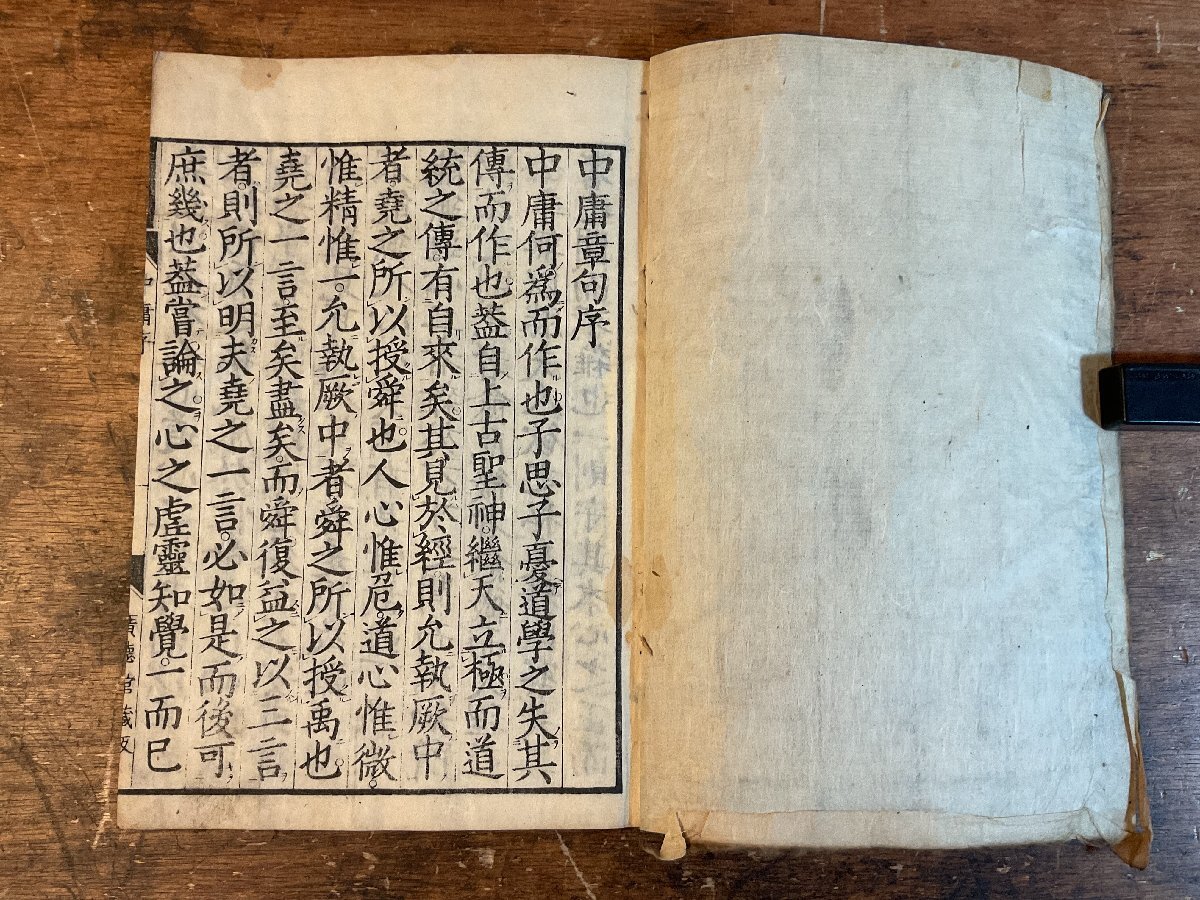 中庸章句序
中庸何爲而作也子思子憂道學之失其
傳而作也葢自上古聖神繼天立極而道
統之傳有自來矣其見於經則允執厥中
者堯之所以授舜也人心惟危道心惟微
惟精惟一允執厥中者舜之所以授禹也
堯之一言至矣盡矣而舜復益之以三言
者則所以明夫堯之一言必如是而後可
庶幾也葢嘗論之心之虛靈知覺一而已